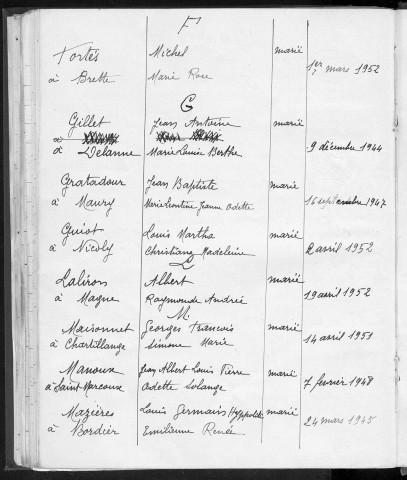 F
Fortés Michel marié
à Brette Marie Rose 1er mars 1952
G
Gillet Jean Antoine marié
à
à Delanne Marie Louise Berthe 9 décembre 1944
Gratadour Jean Baptiste marié
à Maury Marie Leontine Jeanne Odette 16 septembre 1947
Guiot Louis Martha marié
à Nicoly Christiane Madeleine 2 avril 1952
L
Laliron Albert marié
à Magne Raymonde Andrée 19 avril 1952
M.
Maisonnet Georges Francois marié
à Chartillange Simone Marie 14 avril 1951
Manoux Jean Albert Louis Pierre marié
à Saint Marcoux Odette Solange 7 fevrier 1948
Mazières Louis Germain Hyppolite marié
à Bordier Emilienne Renée 24 mars 1945